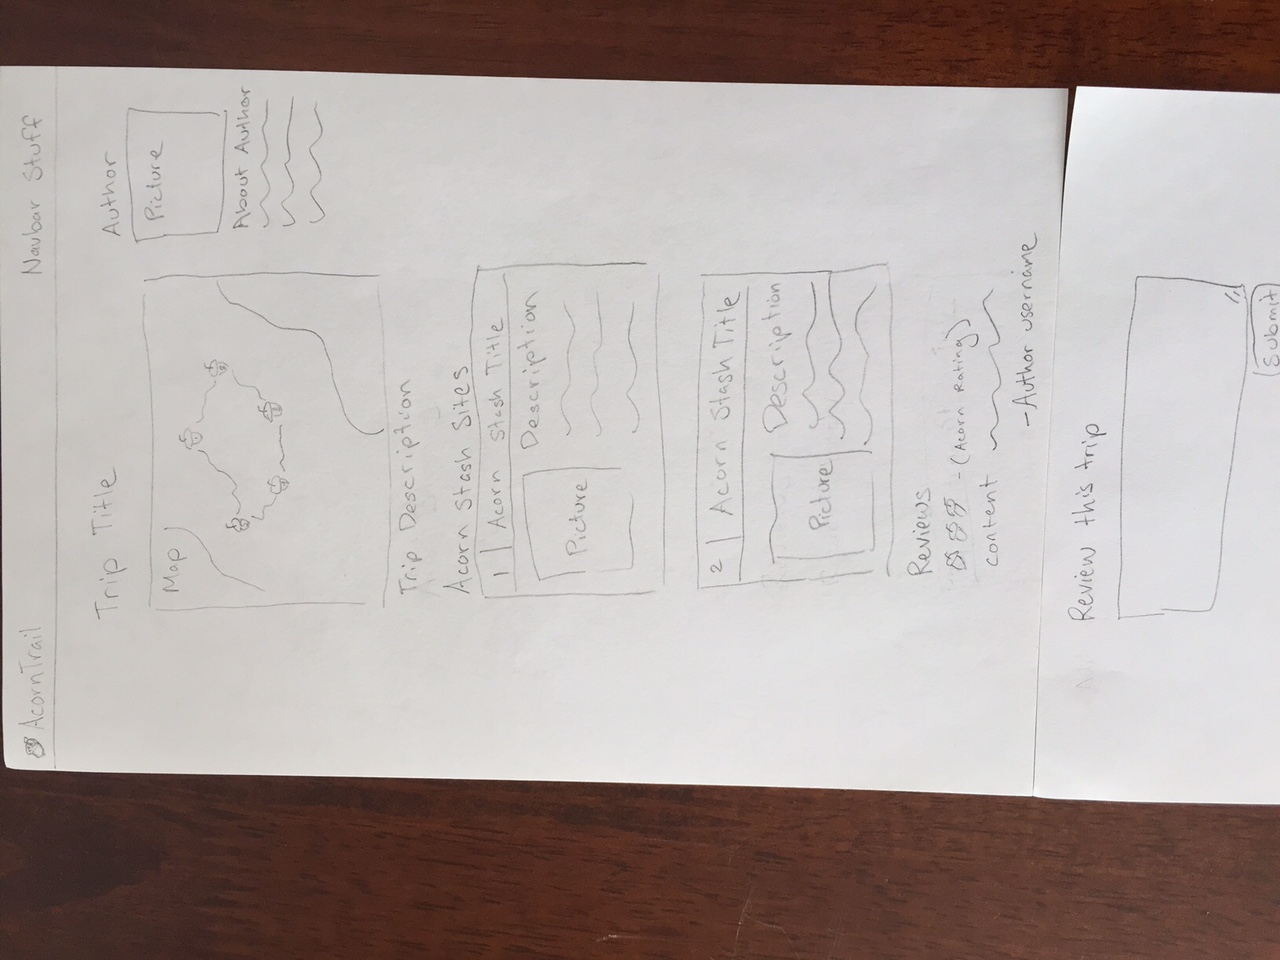 AcornTrail Navbar Stuff
Trip Title
Author
Map
Picture
About Author
Trip Description
Acorn Stash Sites
1 Acorn Stash Title
Picture
Description
2 Acorn Stash Title
Picture
Description
Reviews
-(Acorn Rating)
content
-Author username
Review this trip
Submit